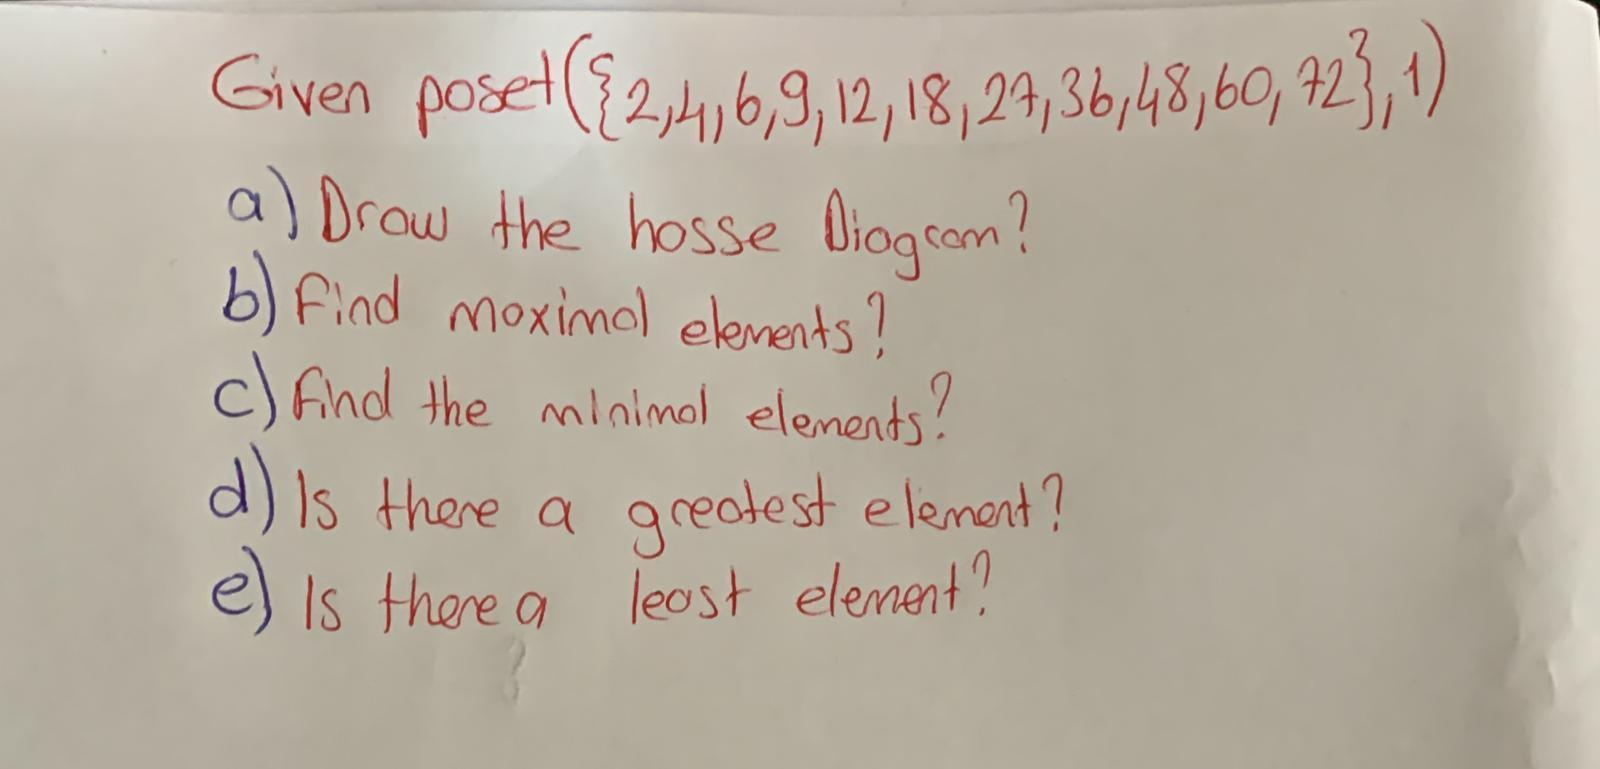 Given poset({2,4,6,9,12,18,27,36,48,60,72},1)
a) Draw the hosse Diagram?
b) Find moximol elements?
c) find the minimol elements?
d) Is there a greatest element?
e) Is there a least element?